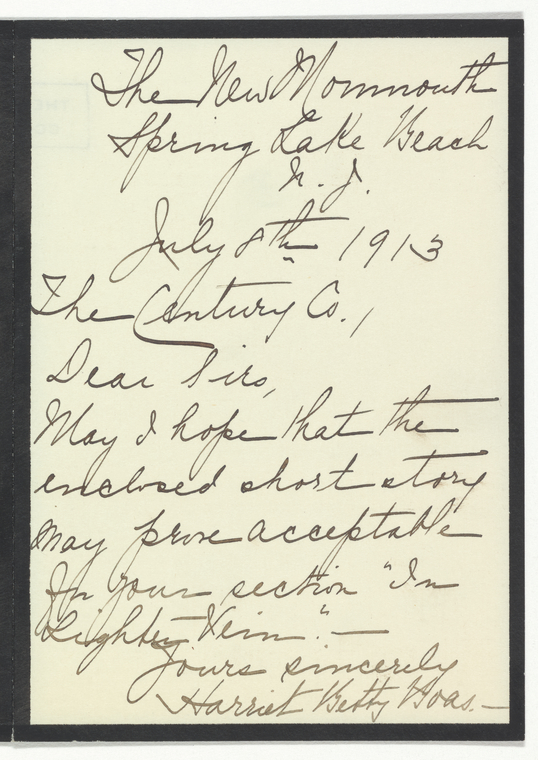 The New Monmouth
Spring Lake Beach
N. J.
July 8th 1913
The Century Co.,
Dear Sirs,
May I hope that the
enclosed short story
may prove acceptable
for your section "In
Lighter Vein." —
Yours sincerely
Harriet Betty Boas. —